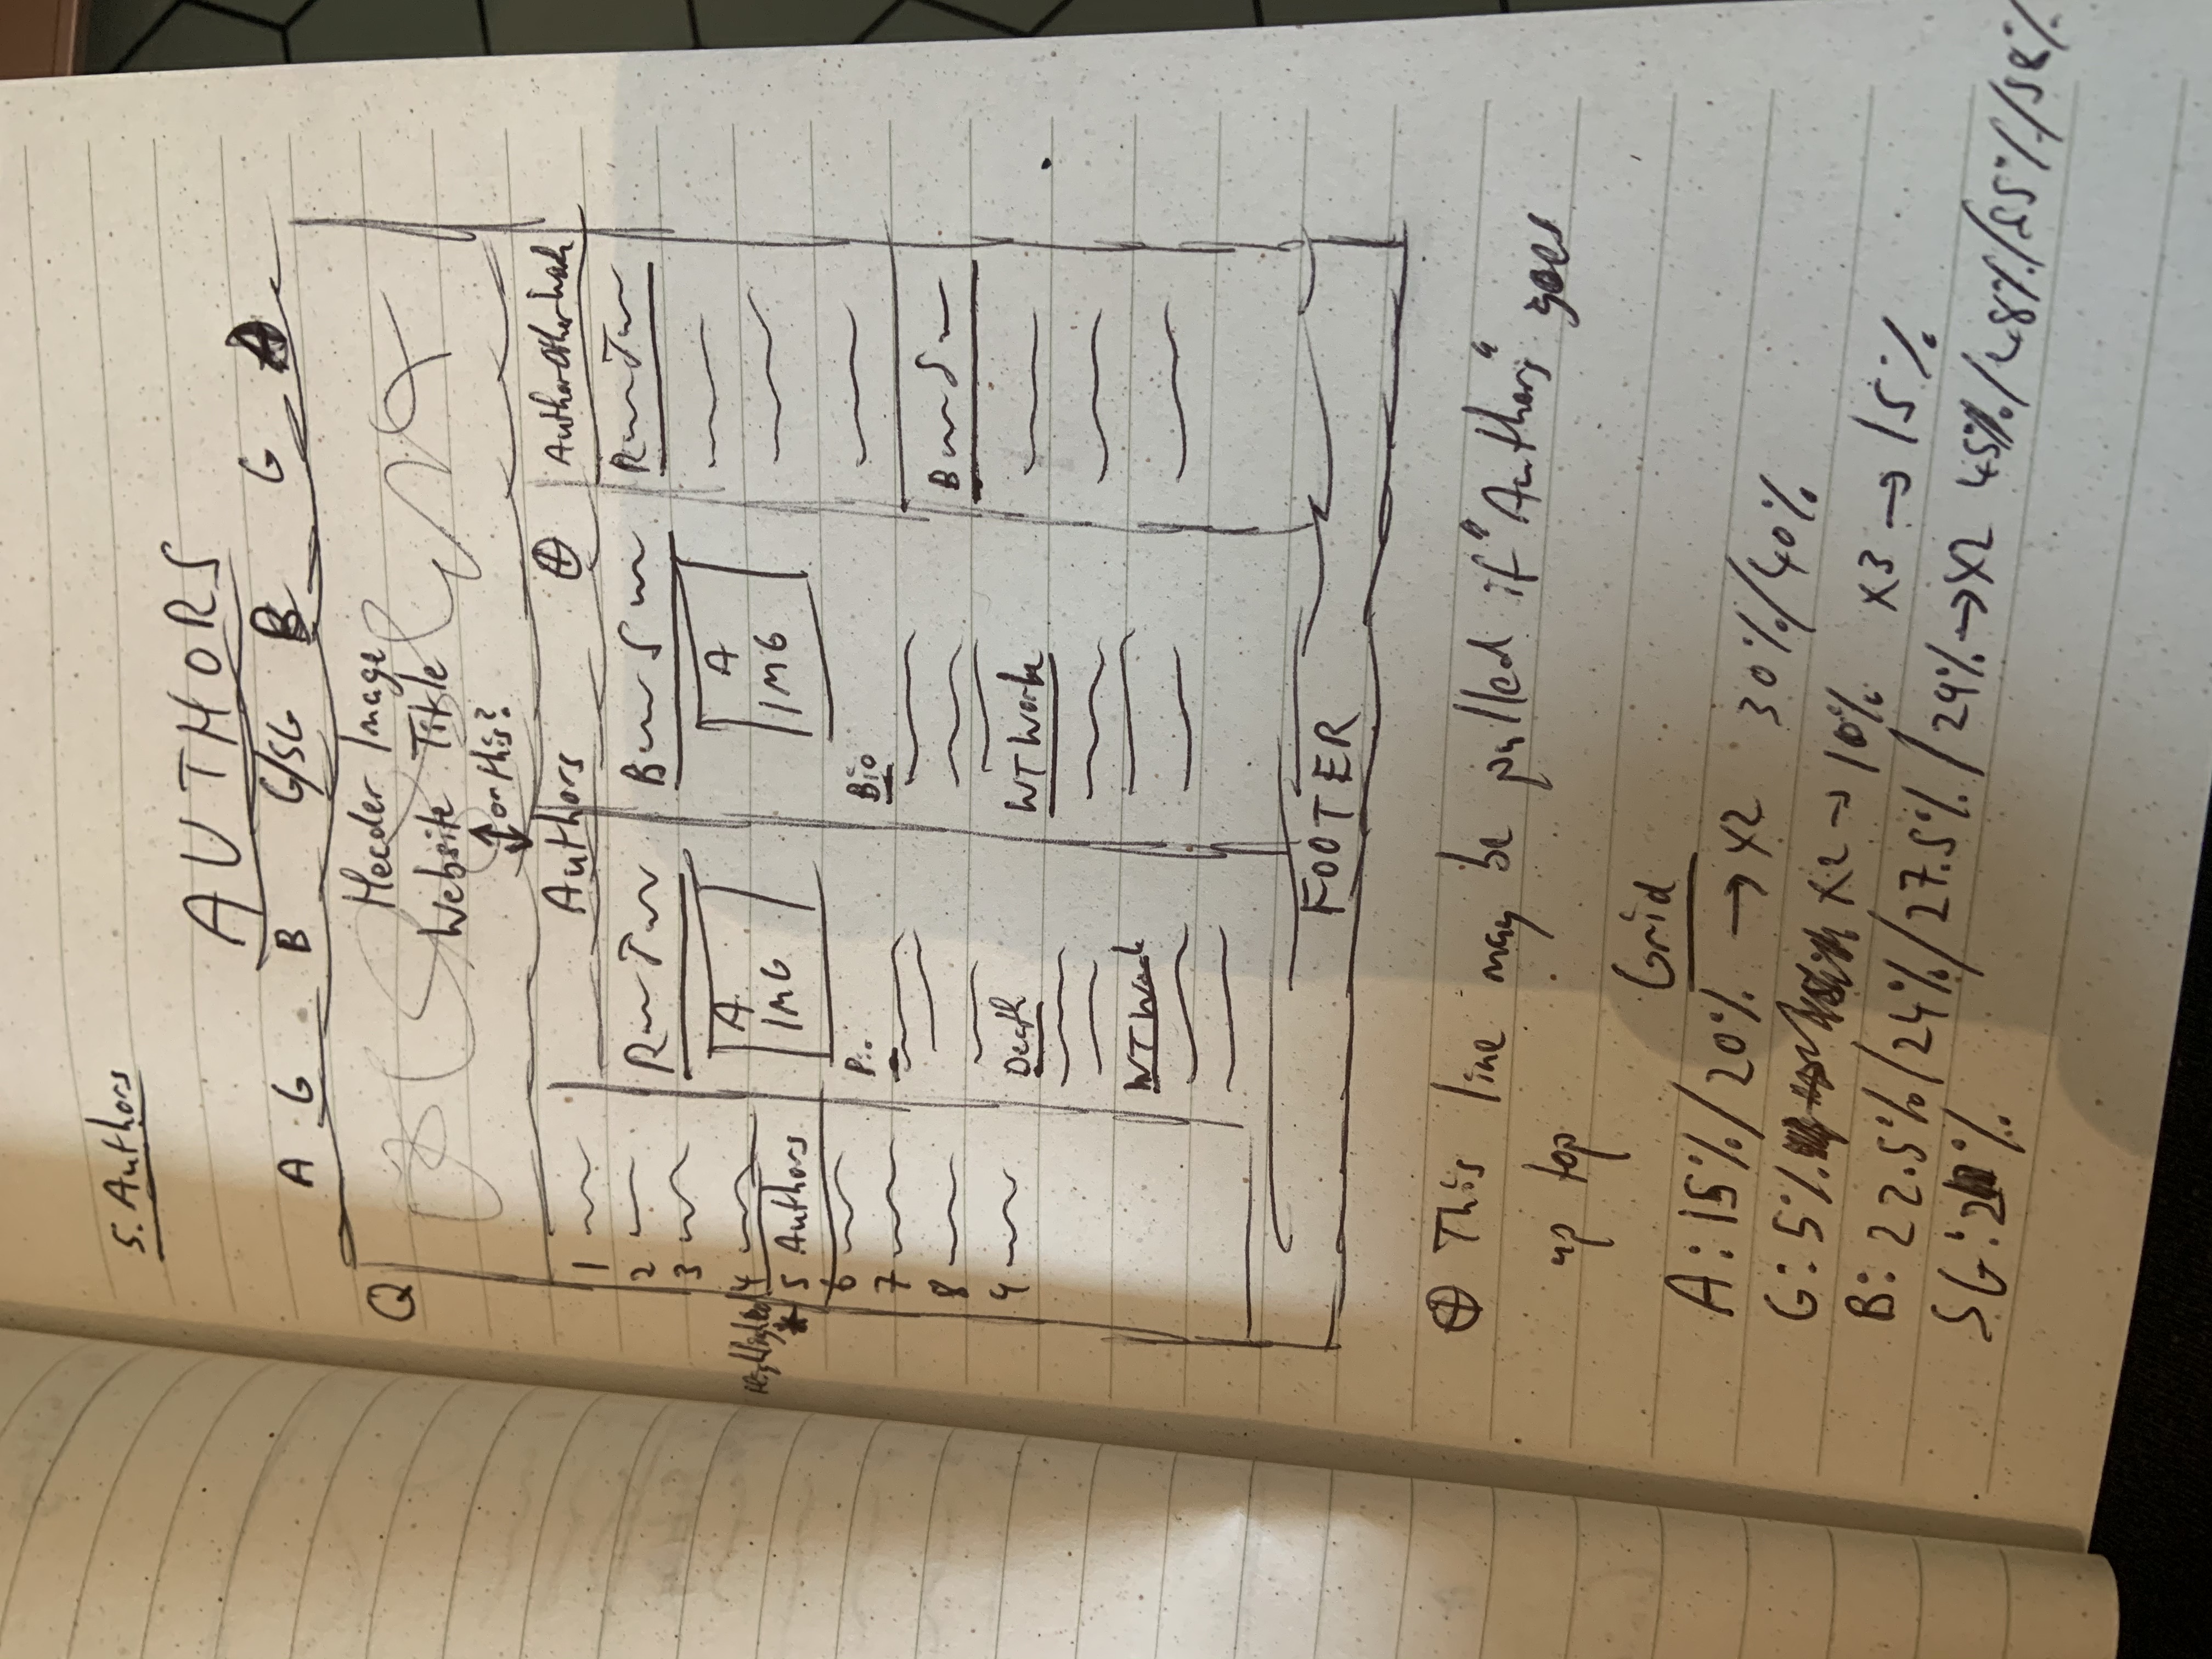 5. Authors
AUTHORS
A G B G/SG B G A
Q
Header Image
Website Title
or this?
Authors ⊕ Author Other Work
1
2
3
Highlighted 4
* 5 Authors
6
7
8
9
R T
A
IMG
Death
WT Work
B S
A
IMG
Bio
WT Work
R T
B S
FOOTER
⊕ This line may be pulled if "Authors" goes
up top
Grid
A: 15%/20% → x2 30%/40%
G: 5% x2 → 10% x3 → 15%
B: 22.5%/24%/27.5%/29% → x2 45%/48%/55%/58%
SG: 2%